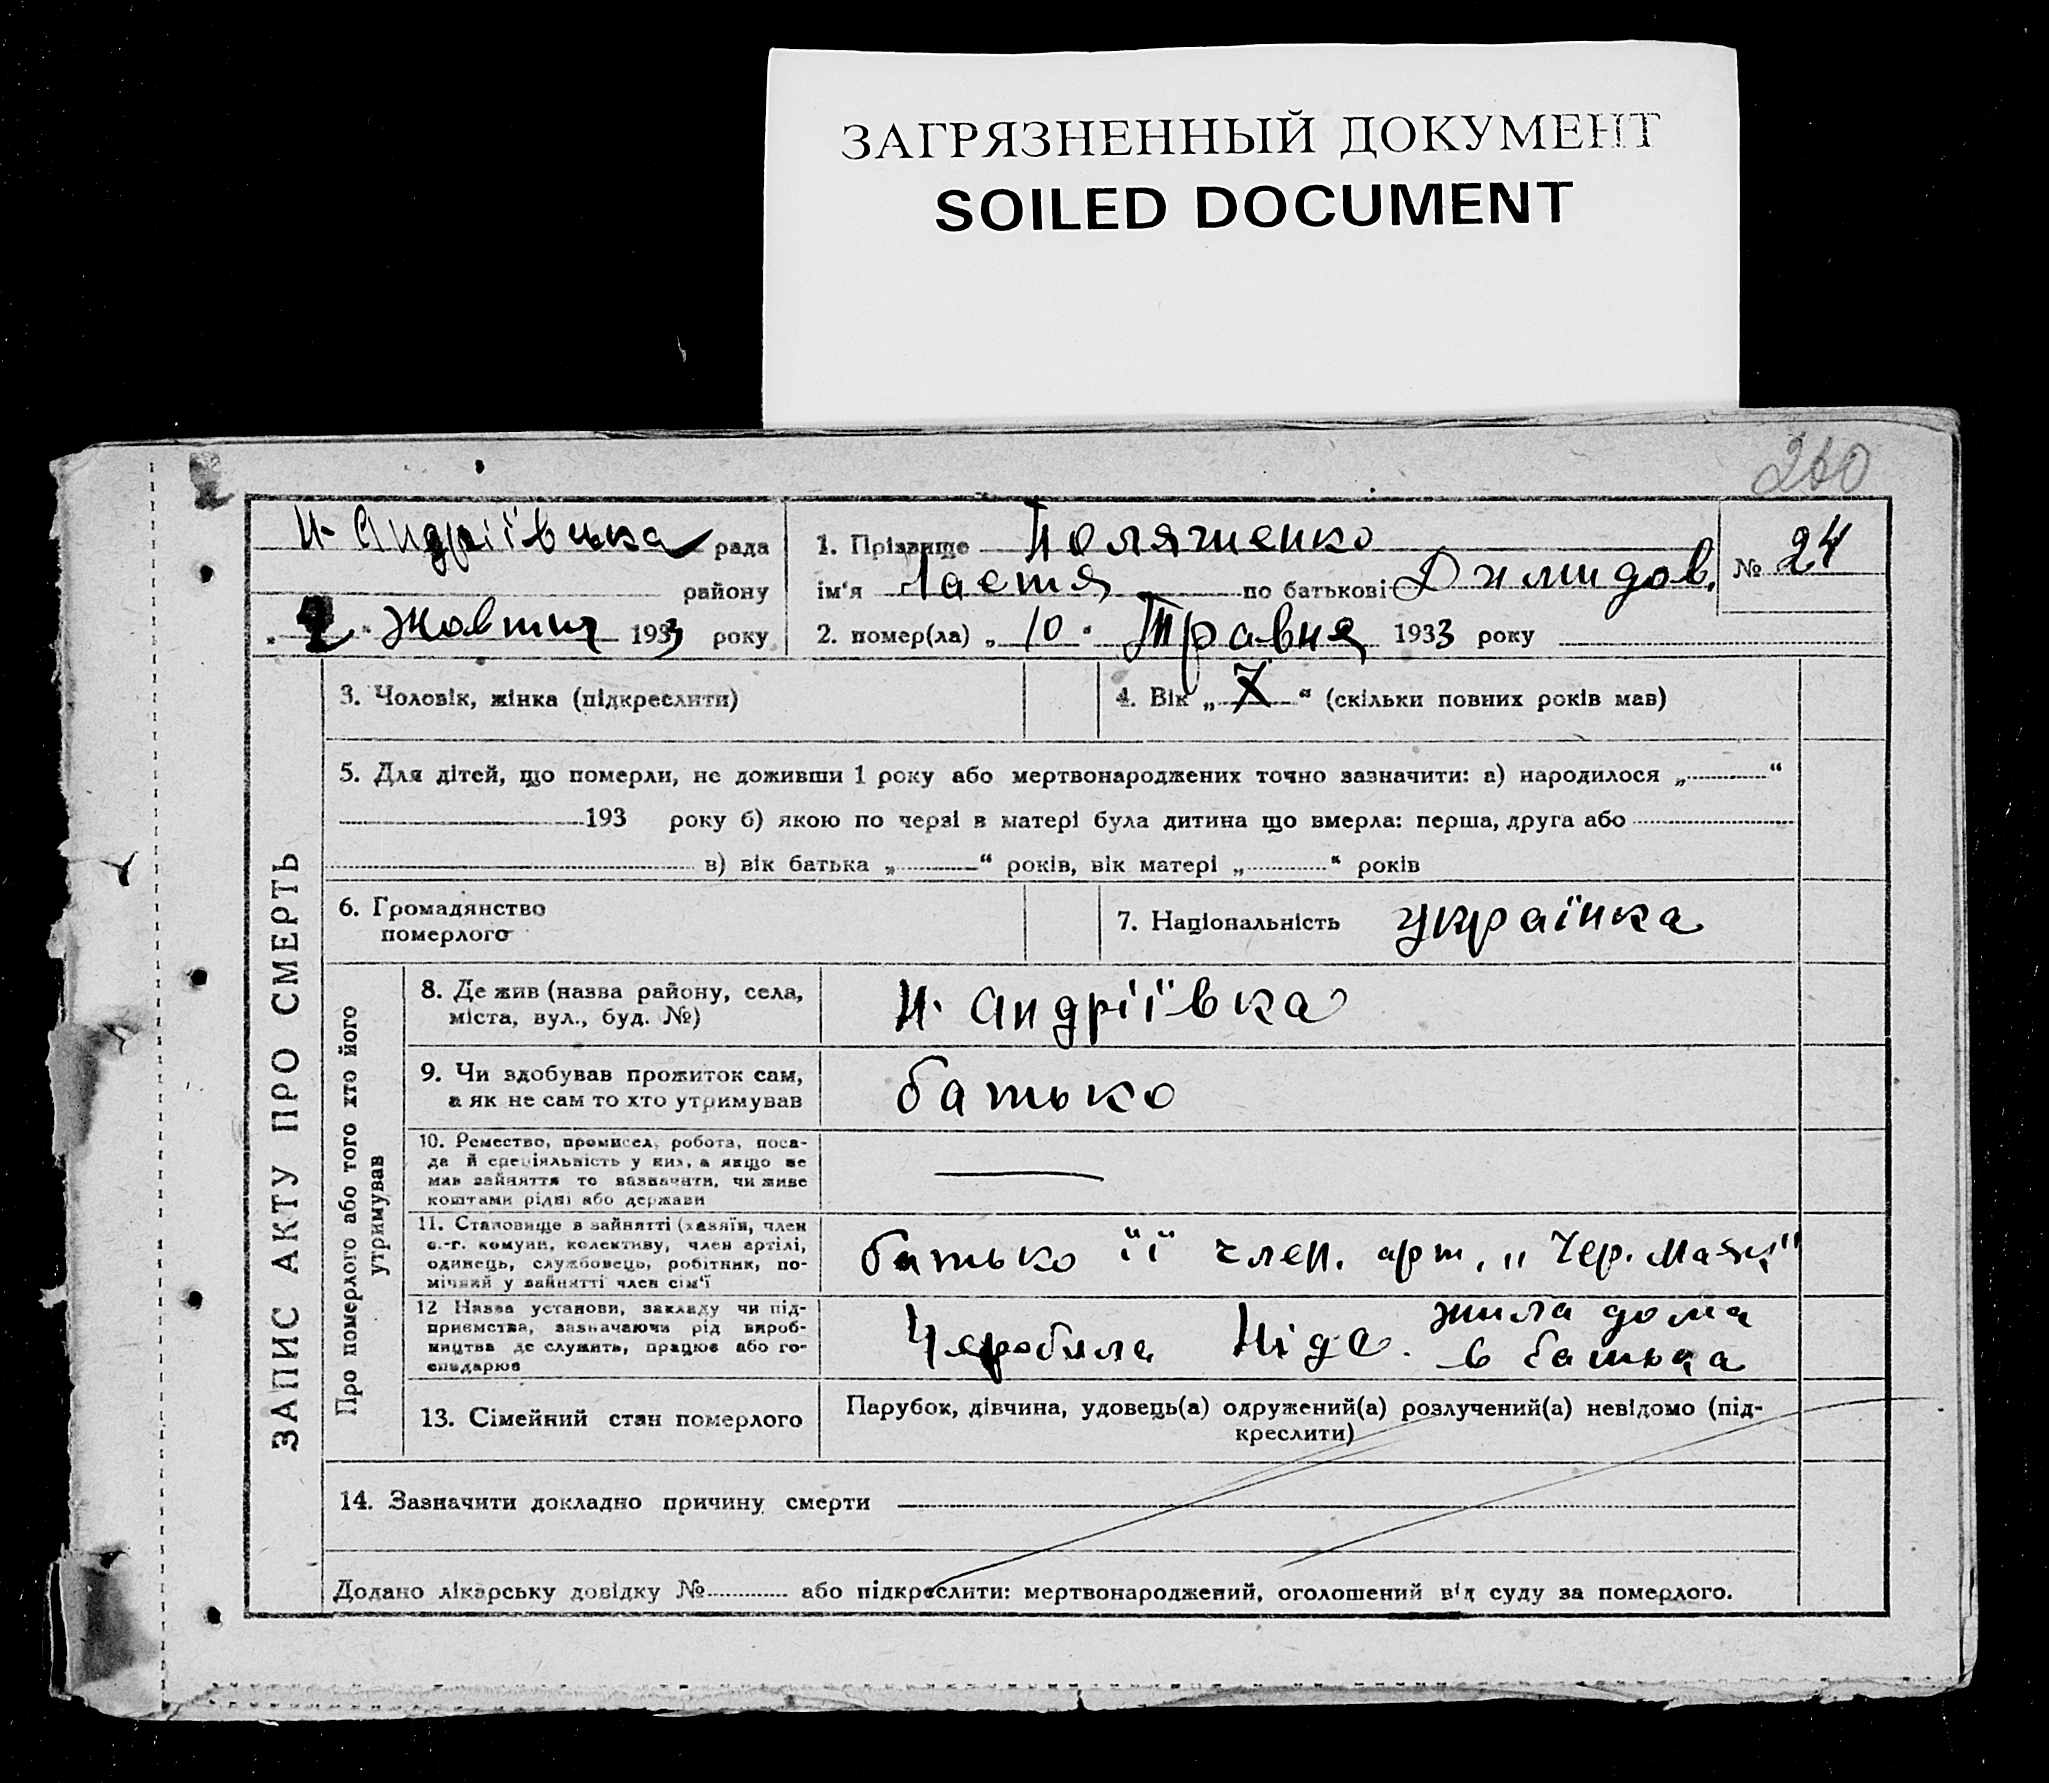 ЗАГРЯЗНЕННЫЙ ДОКУМЕНТ
SOILED DOCUMENT
260
Н. Андріївська рада
району
„ 2 “ Жовтня 1933 року
1. Прізвище Поляшенко
ім‘я Настя по батькові Дилидов.
2. помер(ла) „ 10 “ Травня 1933 року
№ 24
ЗАПИС АКТУ ПРО СМЕРТЬ
3. Чоловік, жінка (підкреслити)
4. Вік „ 7 “ (скільки повних років мав)
5. Для дітей, що померли, не доживши 1 року або мертвонароджених точно зазначити: а) народилося „ “
193 року б) якою по черзі в матері була дитина що вмерла: перша, друга або
в) вік батька „ “ років, вік матері „ “ років
6. Громадянство
померлого
7. Національність українка
Про померлого або того хто його
утримував
8. Де жив (назва району, села,
міста, вул., буд. №)
Н. Андріївка
9. Чи здобував прожиток сам,
а як не сам то хто утримував
батько
10. Ремество, промисел, робота, поса-
да й спеціяльність у них, а якщо не
мав зайняття то зазначити, чи живе
коштами рідні або держави
11. Становище в зайнятті (хазяїн, член
с.-г. комуни, колективу, член артілі,
одинець, службовець, робітник, по-
мічний у зайнятті член сім‘ї
батько її член. арт. „Чер. Маяк"
12 Назва установи, закладу чи під-
приємства, зазначаючи рід вироб-
ництва де служить, працює або го-
сподарює
Неробила Ніде. жила дома
в батька
13. Сімейний стан померлого
Парубок, дівчина, удовець(а) одружений(а) розлучений(а) невідомо (під-
креслити)
14. Зазначити докладно причину смерти
Додано лікарську довідку № або підкреслити: мертвонароджений, оголошений від суду за померлого.